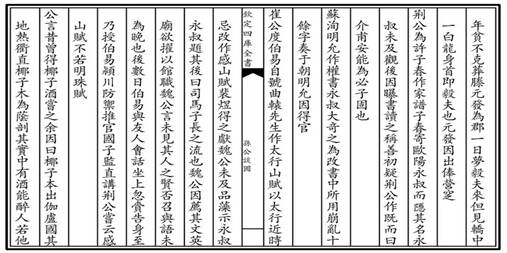 年貧不克葬滕元發為郡一日夢毅夫來但見轎中
一白龍身首即毅夫也元發因出俸營定
荊公為許子春作家譜子春寄歐陽永叔而隱其名永
叔未及觀後因曝書讀之稱善初疑荊公作既而曰
介甫安能為必子固也
蘇洵明允作權書永叔大奇之為改書中所用崩亂十
餘字奏于朝明允因得官
欽定四庫全書
孫公談圃
崔公度伯易自號曲轅先生作太行山賦以太行近時
忌改作感山賦裴煜得之獻魏公未及品藻示永叔
永叔題其後曰司馬子長之流也魏公因薦其文英
廟欲擢以館職魏公言未見其人之賢否召與語未
為晚也後數日伯易與友人會話坐上忽膏告身至
乃授伯易潁川防禦推官國子監直講荊公嘗云感
山賦不若明珠賦
公言昔曾得椰子酒嘗之余因曰椰子本出伽盧國其
地熱衢直椰子木為蔭剖其實中有酒能醉人若他